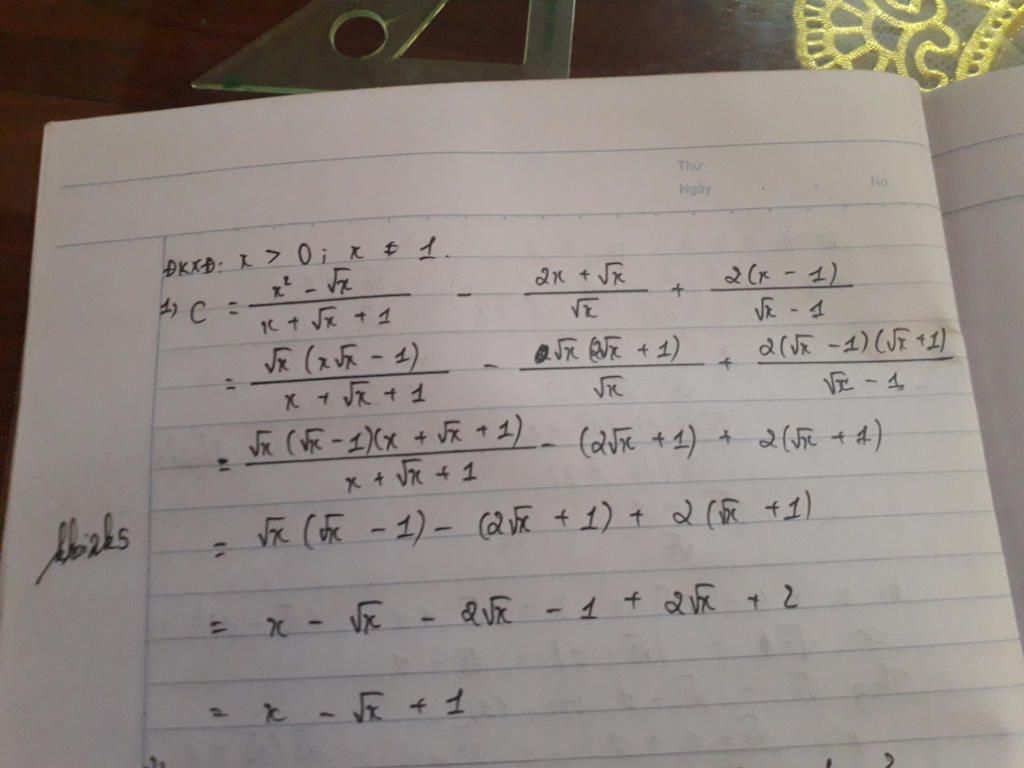 Thứ
Ngày No.
ĐKXĐ: x > 0 ; x ≠ 1.
1) C = (x² - √x)/(x + √x + 1) - (2x + √x)/√x + 2(x - 1)/(√x - 1)
= √x (x√x - 1)/(x + √x + 1) - √x (2√x + 1)/√x + 2(√x - 1)(√x + 1)/(√x - 1)
= √x (√x - 1)(x + √x + 1)/(x + √x + 1) - (2√x + 1) + 2(√x + 1)
= √x (√x - 1) - (2√x + 1) + 2 (√x + 1)
= x - √x - 2√x - 1 + 2√x + 2
= x - √x + 1